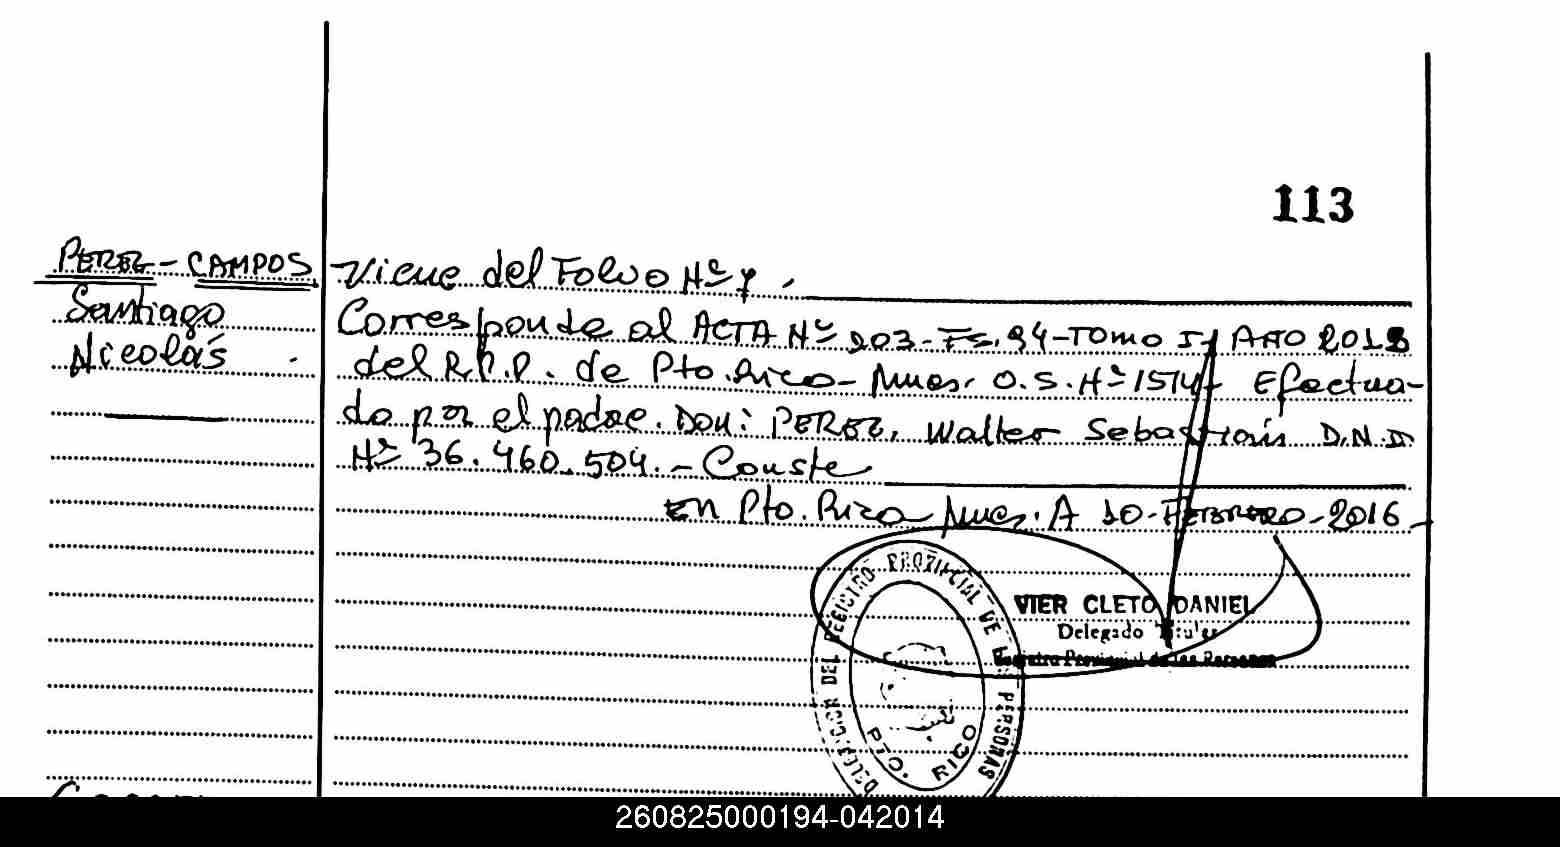 113
PEREZ - CAMPOS
Santiago
Nicolás
Viene del Folio Nº 7.
Corresponde al ACTA Nº 203 - Fs. 94 - TOMO I - AÑO 2013
del R.P.P. de Pto. Rico - Mnes. O.S. Nº 1514 - Efectua-
do por el padre. Don: PEREZ, Walter Sebastián D.N.I
Nº 36.460.504. - Conste
En Pto. Rico Mnes. A 10 - FEBRERO - 2016
VIER CLETO DANIEL
Delegado Titular
Registro Provincial de las Personas
DELEGACION DEL REGISTRO PROVINCIAL DE LAS PERSONAS
PTO. RICO
260825000194-042014